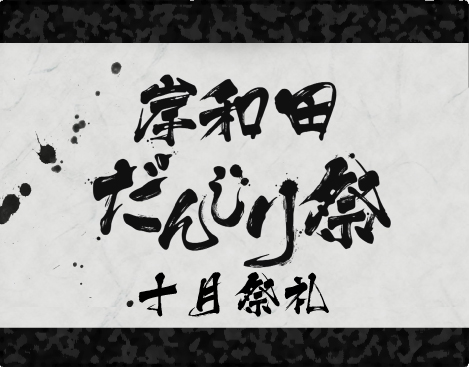 岸和田
だんじり祭
十月祭礼